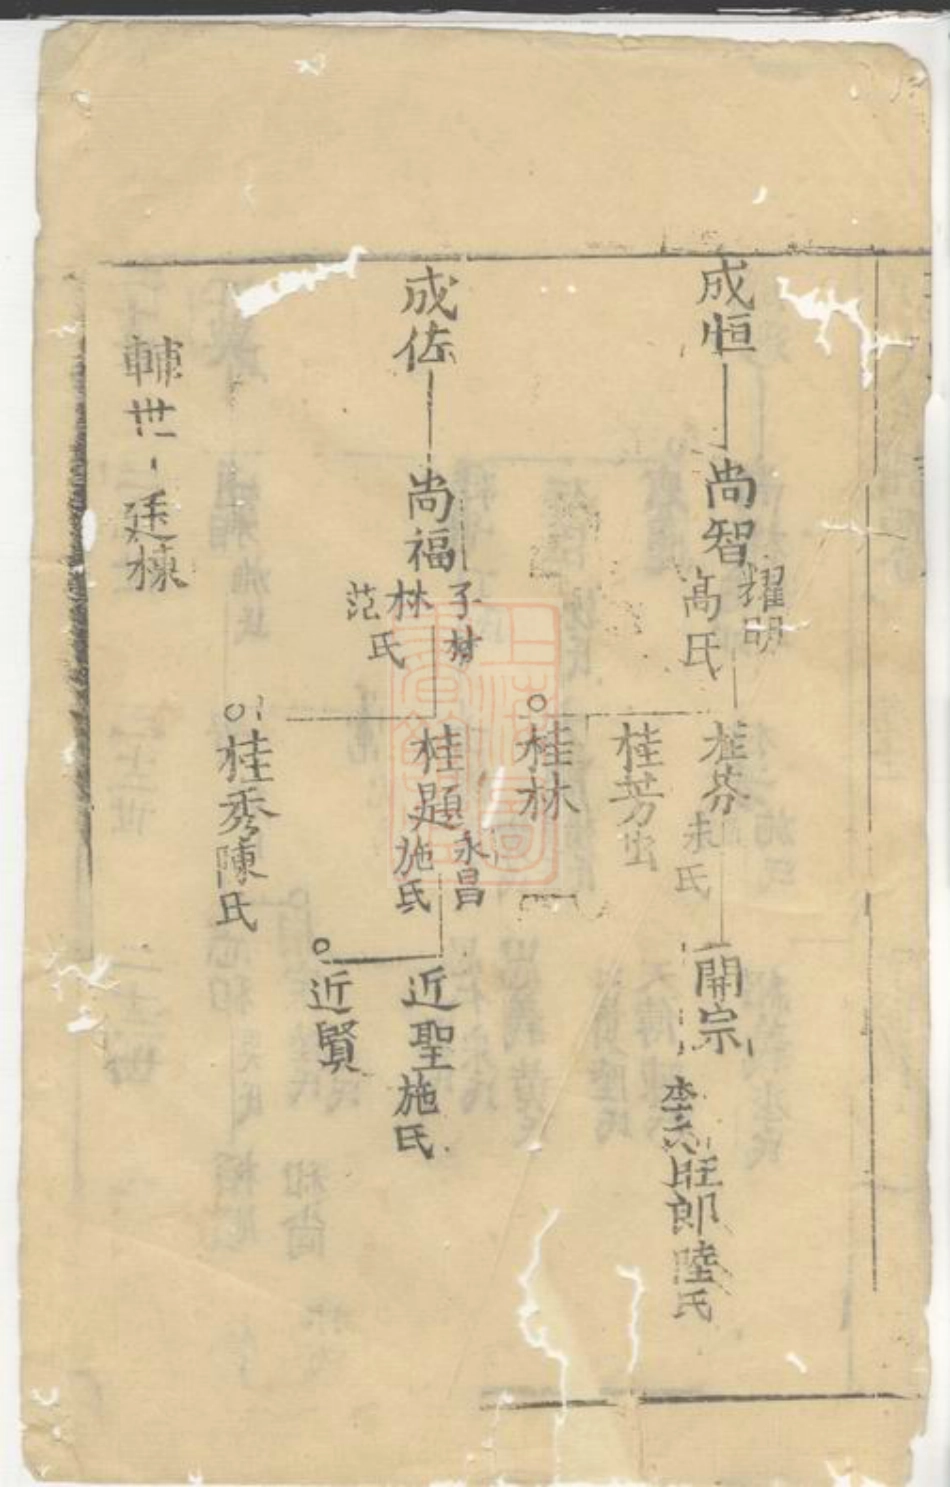 成恒
尚智
耀明
高氏
桂芬
朱氏
開宗
旺郎陸氏
桂芳
桂林
成佐
尚福
子材
林
范
氏
桂題
永昌
施氏
近聖施氏
近賢
桂秀陳氏
輔世
廷棟